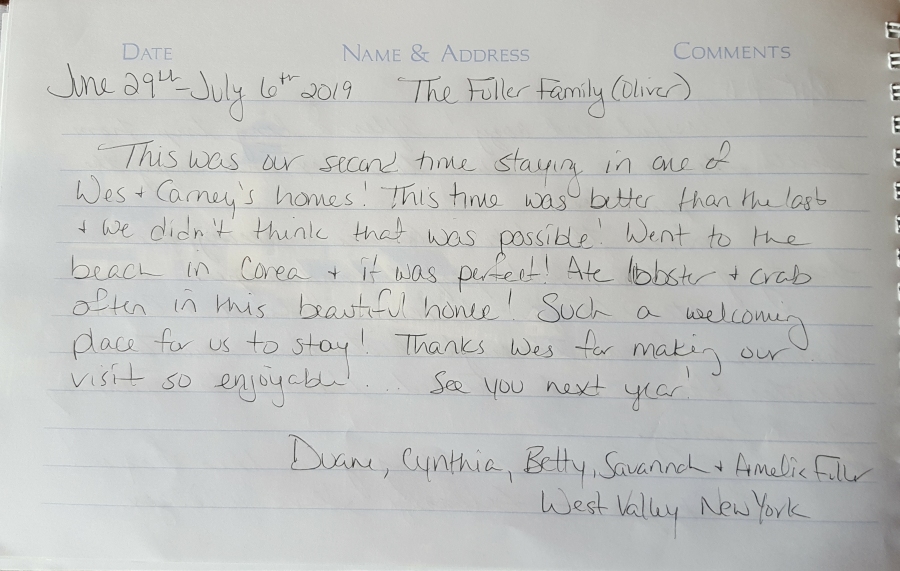 DATE NAME & ADDRESS COMMENTS
June 29th - July 6th 2019 The Fuller Family (Oliver)
This was our second time staying in one of
Wes + Carney's homes! This time was better than the last
+ we didn't think that was possible! Went to the
beach in Corea + it was perfect! Ate lobster + crab
often in this beautiful home! Such a welcoming
place for us to stay! Thanks Wes for making our
visit so enjoyable! ... See you next year!
Duane, Cynthia, Betty, Savannah + Amelia Fuller
West Valley New York